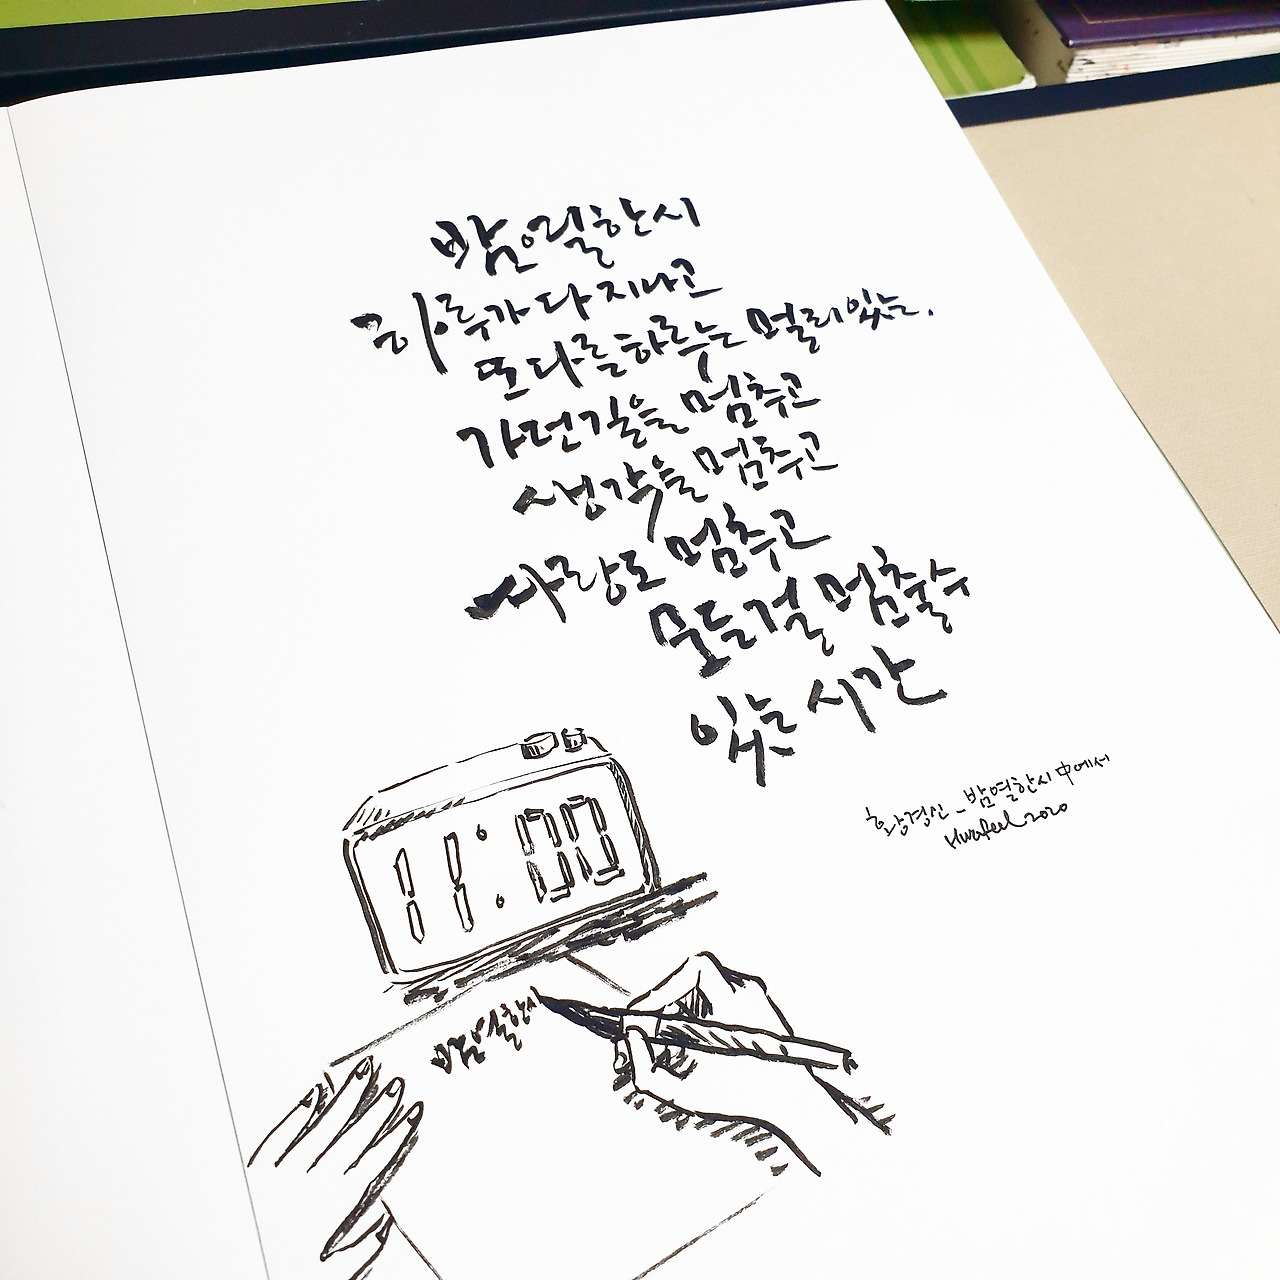 밤 열한시
하루가 다 지나고
또 다른 하루는 멀리 있는.
가던 길을 멈추고
생각을 멈추고
사랑도 멈추고
모든걸 멈출 수
있는 시간
황경신_밤 열한시 中에서
Hwafeel 2020
11:00
밤 열한시